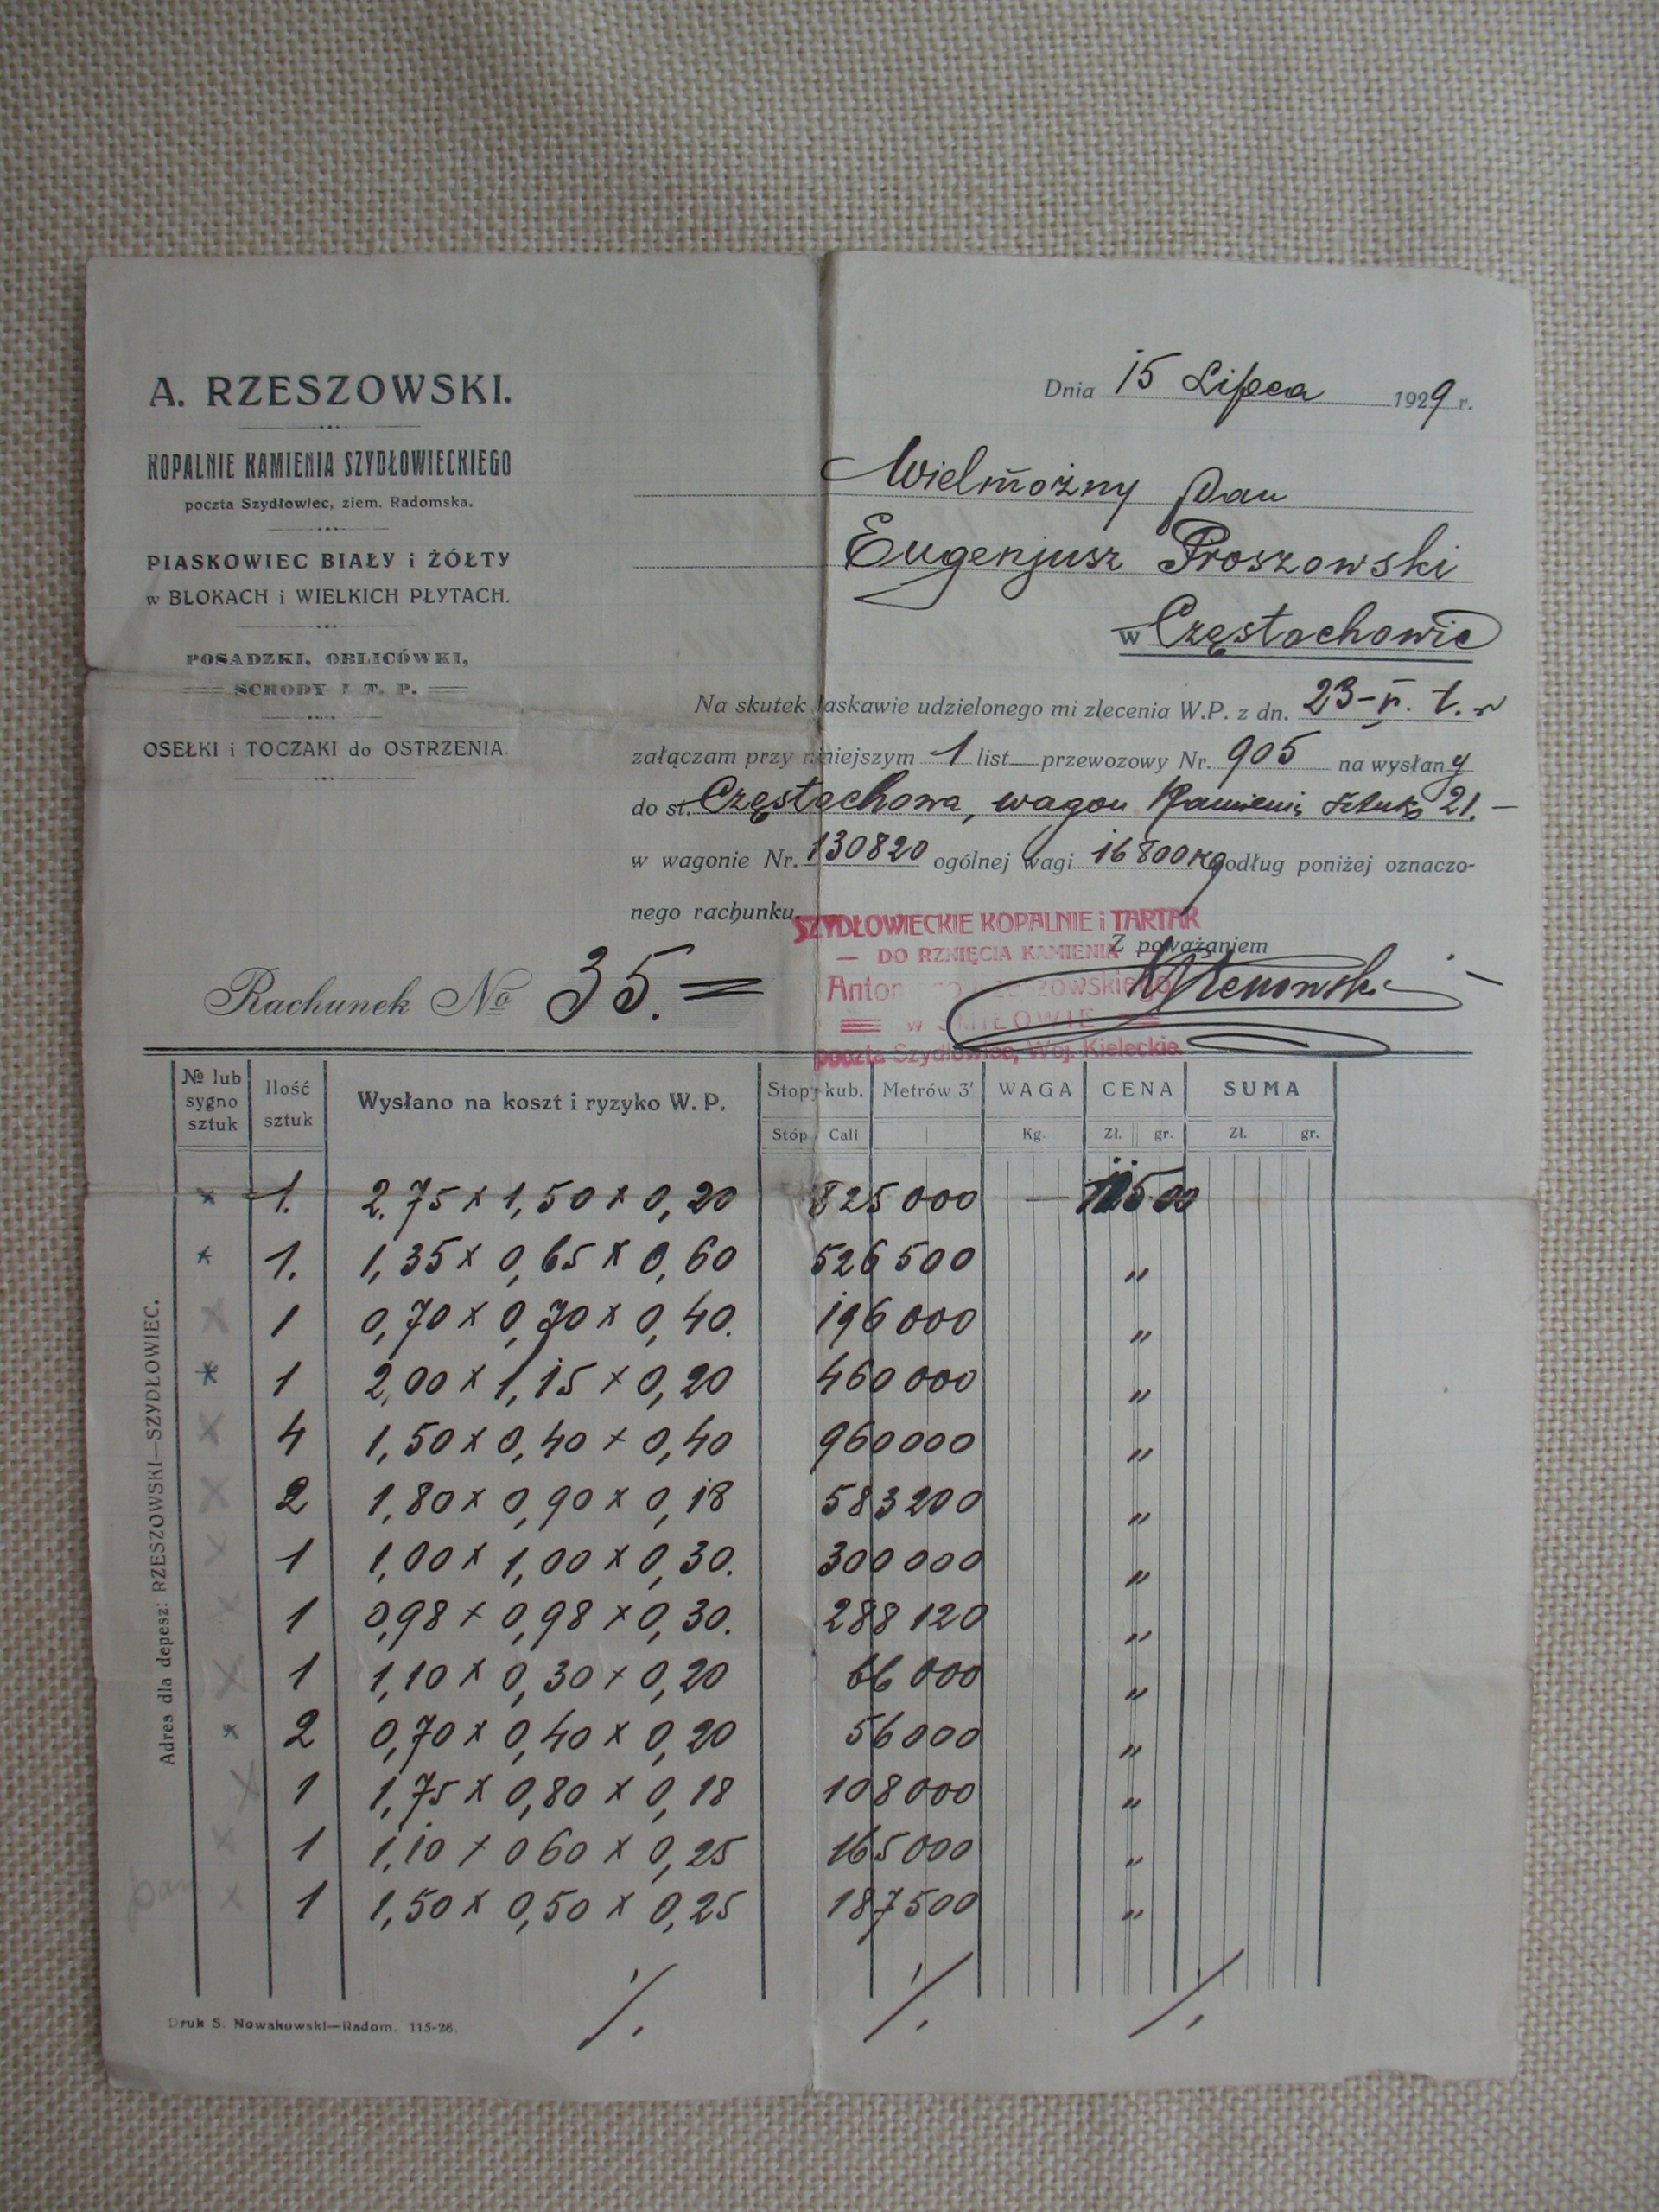 A. RZESZOWSKI.
KOPALNIE KAMIENIA SZYDŁOWIECKIEGO
poczta Szydłowiec, ziem. Radomska.
PIASKOWIEC BIAŁY i ŻÓŁTY
w BLOKACH i WIELKICH PŁYTACH.
POSADZKI, OBLICÓWKI,
SCHODY I T. P.
OSEŁKI i TOCZAKI do OSTRZENIA.
Dnia 15 Lipca 1929 r.
Wielmożny Pan
Eugenjusz Proszowski
w Częstochowie
Na skutek łaskawie udzielonego mi zlecenia W.P. z dn. 23-V. t. r
załączam przy niniejszym 1 list przewozowy Nr. 905 na wysłany
do st. Częstochowa, wagon Kamieni, sztuk 21.—
w wagonie Nr. 130820 ogólnej wagi 16800 kg podług poniżej oznaczo-
nego rachunku.
SZYDŁOWIECKIE KOPALNIE i TARTAK
— DO RZNIĘCIA KAMIENIA
Z poważaniem
w SMIŁOWIE
poczta Szydłowiec, Woj. Kieleckie.
Rachunek № 35.=
№ lub sygno sztuk Ilość sztuk Wysłano na koszt i ryzyko W. P. Stopy kub. Metrów 3' WAGA CENA SUMA
Stóp Cali Kg. Zł. gr. Zł. gr.
1. 2,75 x 1,50 x 0,20 825 000 — 115 00
1. 1,35 x 0,65 x 0,60 526 500 "
1 0,70 x 0,70 x 0,40. 196 000 "
1 2,00 x 1,15 x 0,20 460 000 "
4 1,50 x 0,40 x 0,40 960 000 "
2 1,80 x 0,90 x 0,18 583 200 "
1 1,00 x 1,00 x 0,30. 300 000 "
1 0,98 x 0,98 x 0,30. 288 120 "
1 1,10 x 0,30 x 0,20 66 000 "
2 0,70 x 0,40 x 0,20 56 000 "
1 1,75 x 0,80 x 0,18 108 000 "
1 1,10 x 0 60 x 0,25 165 000 "
1 1,50 x 0,50 x 0,25 187 500 "
Adres dla depesz: RZESZOWSKI—SZYDŁOWIEC.
Druk S. Nowakowski—Radom. 115-28.